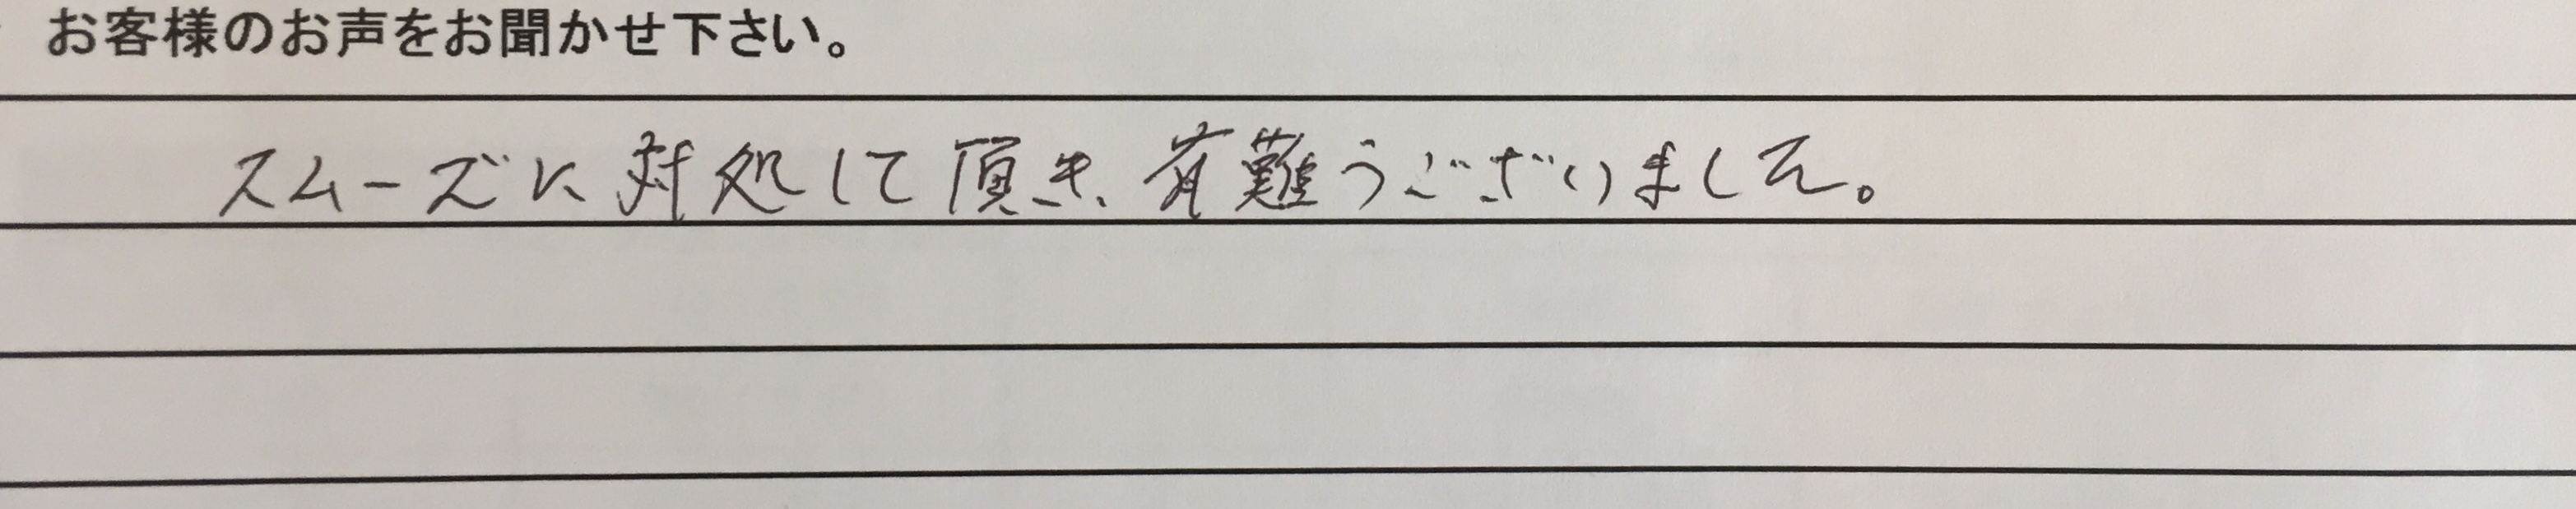 お客様のお声をお聞かせ下さい。
スムーズに対処して頂き、有難うございました。